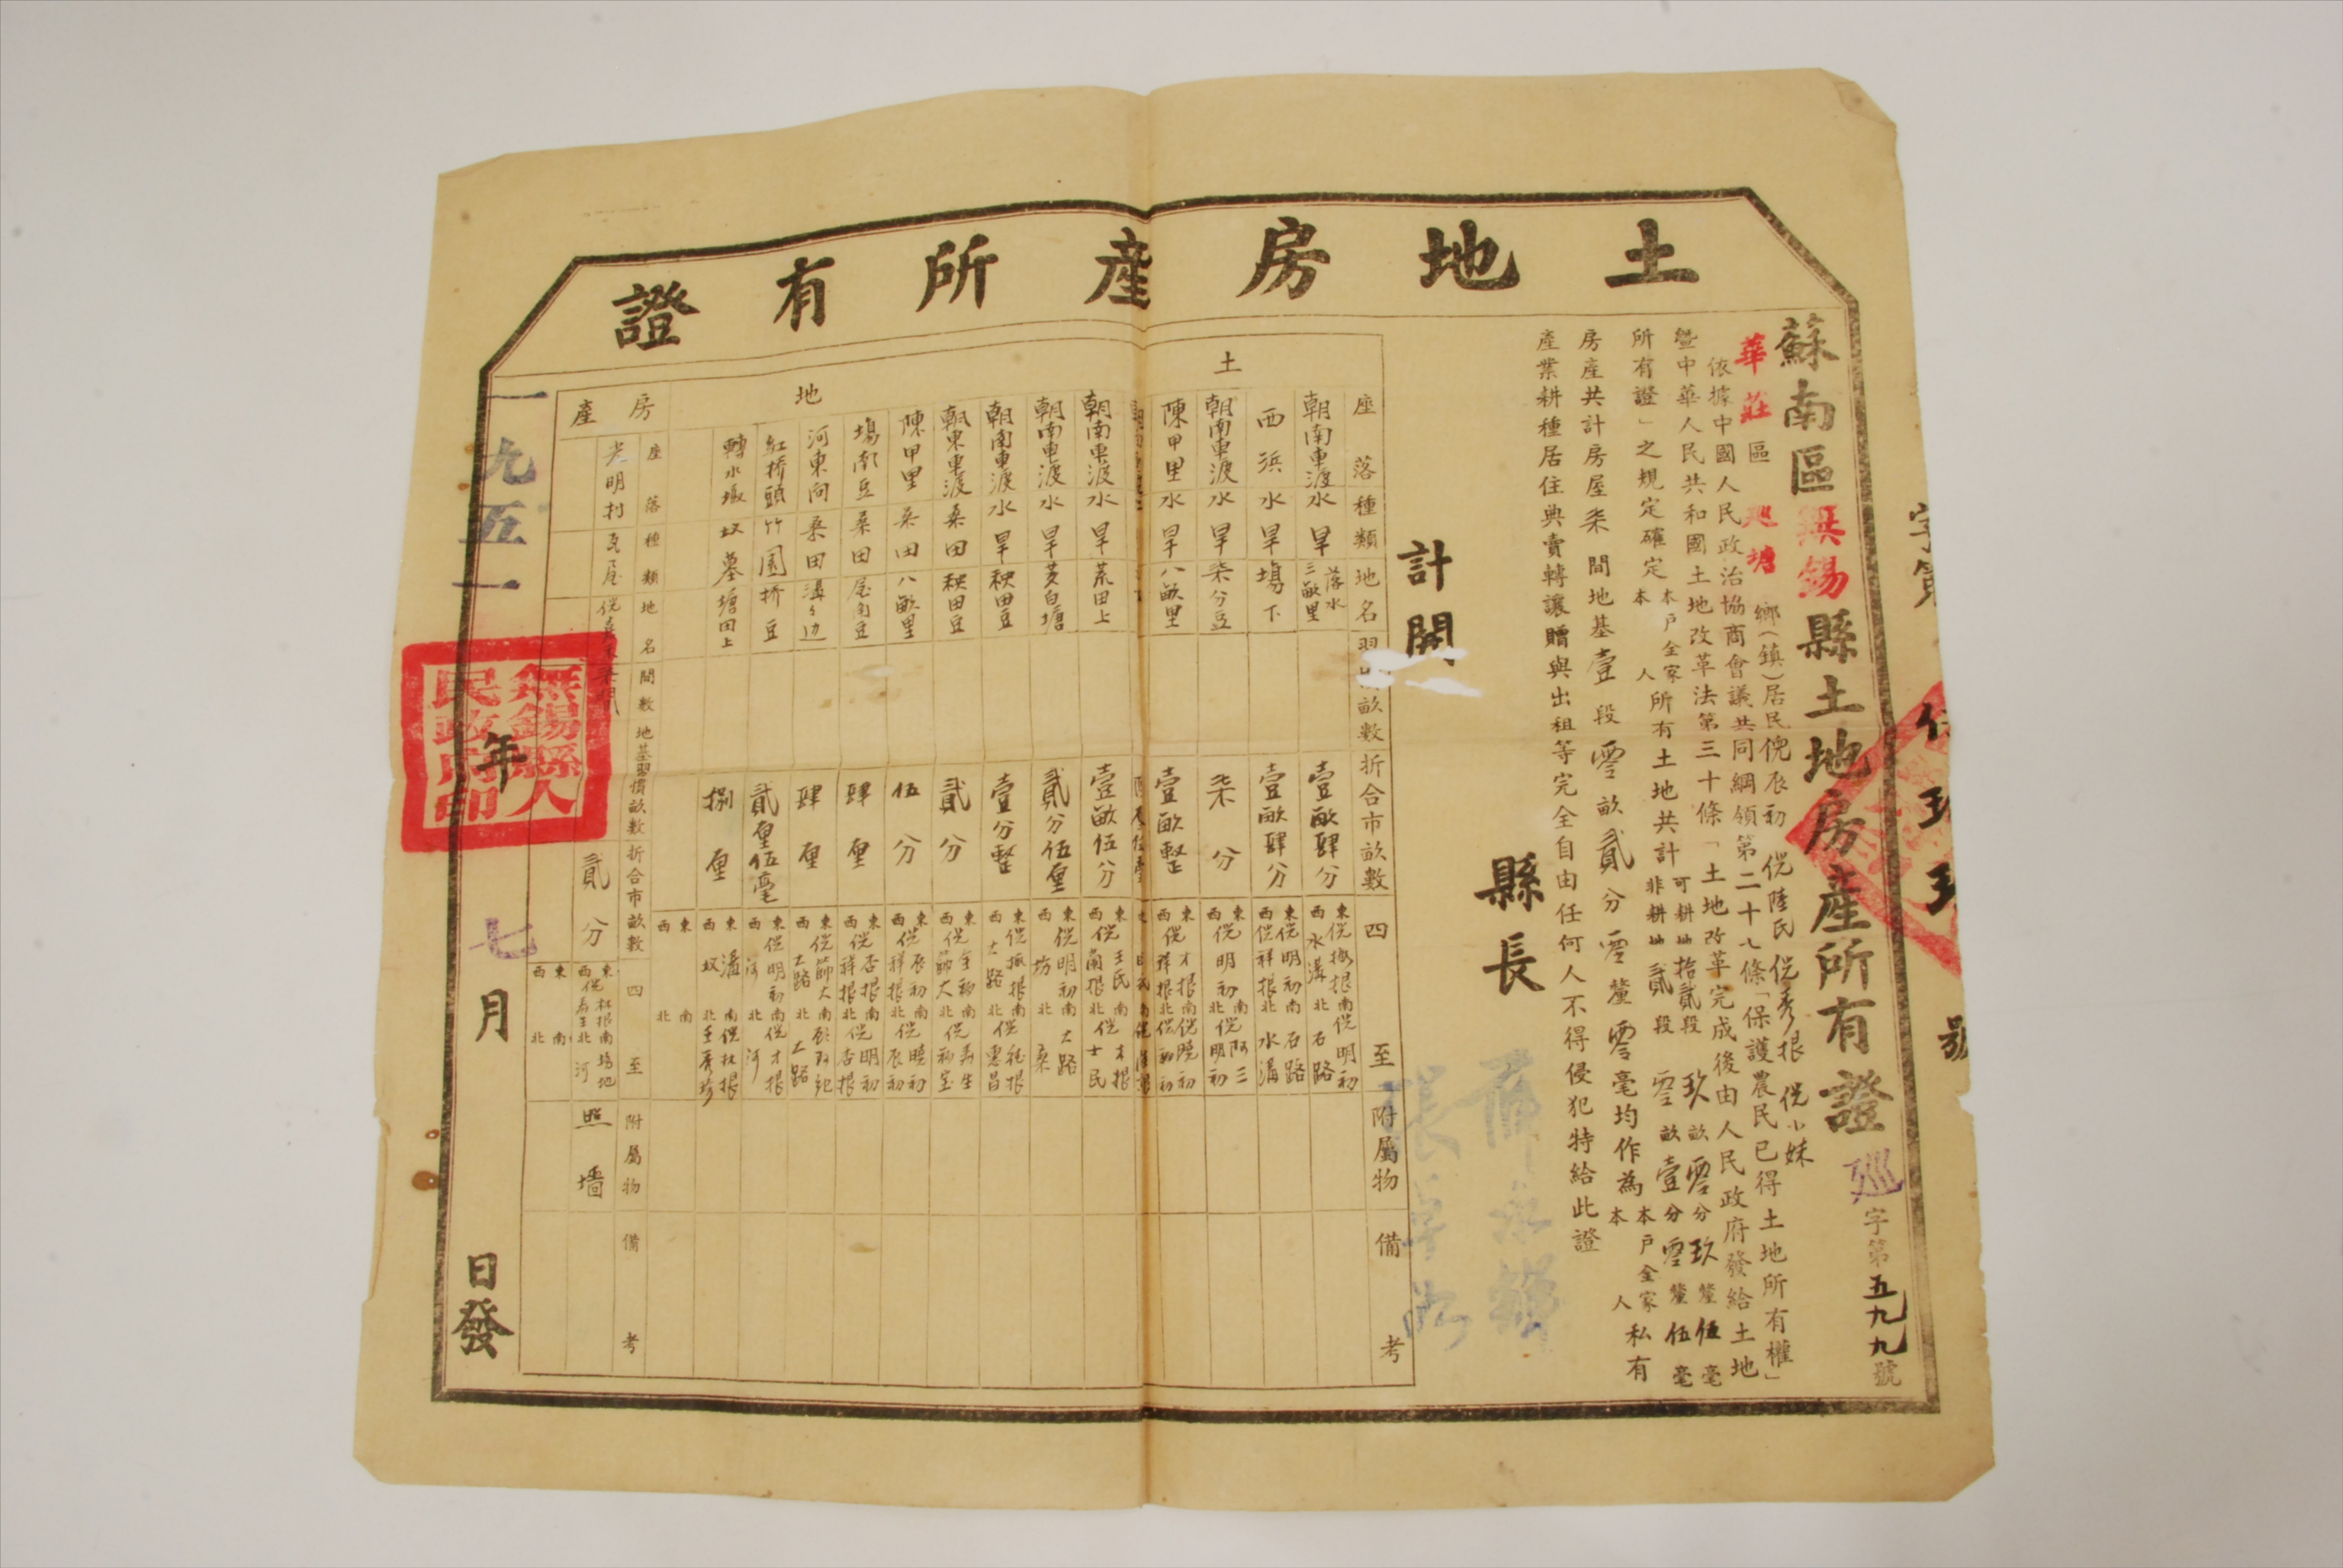 土地房產所有證
蘇南區無錫縣土地房產所有證
字第五九九號
華莊區 塘鄉(鎮)居民倪辰初 倪陸氏 倪秀根 倪小妹
依據中國人民政治協商會議共同綱領第二十七條「保護農民已得土地所有權」
暨中華人民共和國土地改革法第三十條「土地改革完成後由人民政府發給土地
所有證」之規定確定本戶全家本人所有土地共計可耕地拾貳段玖畝零分玖釐伍毫非耕地貳段零畝壹分零釐伍毫
房產共計房屋柒間地基壹段零畝貳分零釐零毫均作為本戶全家本人私有
產業耕種居住典賣轉讓贈與出租等完全自由任何人不得侵犯特給此證
計開
縣長
土地
座落 種類 地名 畝數 折合市畝數 四至 附屬物 備考
朝南東渡 水旱 落水三畝里 壹畝肆分 南倪明初 西水溝 北石路
西浜 水旱 塲下 壹畝肆分 東倪明初 南石路 西倪祥根 北水溝
朝南東渡 水旱 柒分豆 柒分 東倪明初 南倪阿三 北倪明初
陳甲里 水旱 八畝里 壹畝整 東倪才根 南倪曉初 西倪祥根 北倪初
朝南東渡 水旱 荒田上 壹畝伍分 東倪王氏 南倪才根 西倪蘭根 北倪士民
朝南東渡 水旱 茭白塘 貳分伍厘 東倪明初 南大路 西坊 北桑
朝南東渡 水旱 秧田豆 壹分整 西大路 北倪惠昌
朝東東渡 桑田 秧田豆 貳分 東倪全初 南倪壽生
陳甲里 桑田 八畝里 伍分 東倪辰初 南倪曉初 西倪祥根 北倪辰初
塲南豆 桑田 屋角豆 肆厘 東倪杏根 南倪明初 西倪祥根 北倪杏根
河東向 桑田 溝邊 肆厘 西大路 北大路
紅橋頭 竹園 橋豆 貳厘伍毫 東倪明初 南倪才根 西河 北河
轉水墩 坟墓 塘田上 捌厘 東溝 南倪林根 西坟
東 南 西 北
房產
座落 種類 地名 間數 地基習慣畝數 折合市畝數 四至 附屬物 備考
光明村 瓦屋 貳分 東倪林根 南塲地 北河 照墻
東 南 西 北
一九五一年七月 日發
無錫縣人民政府印